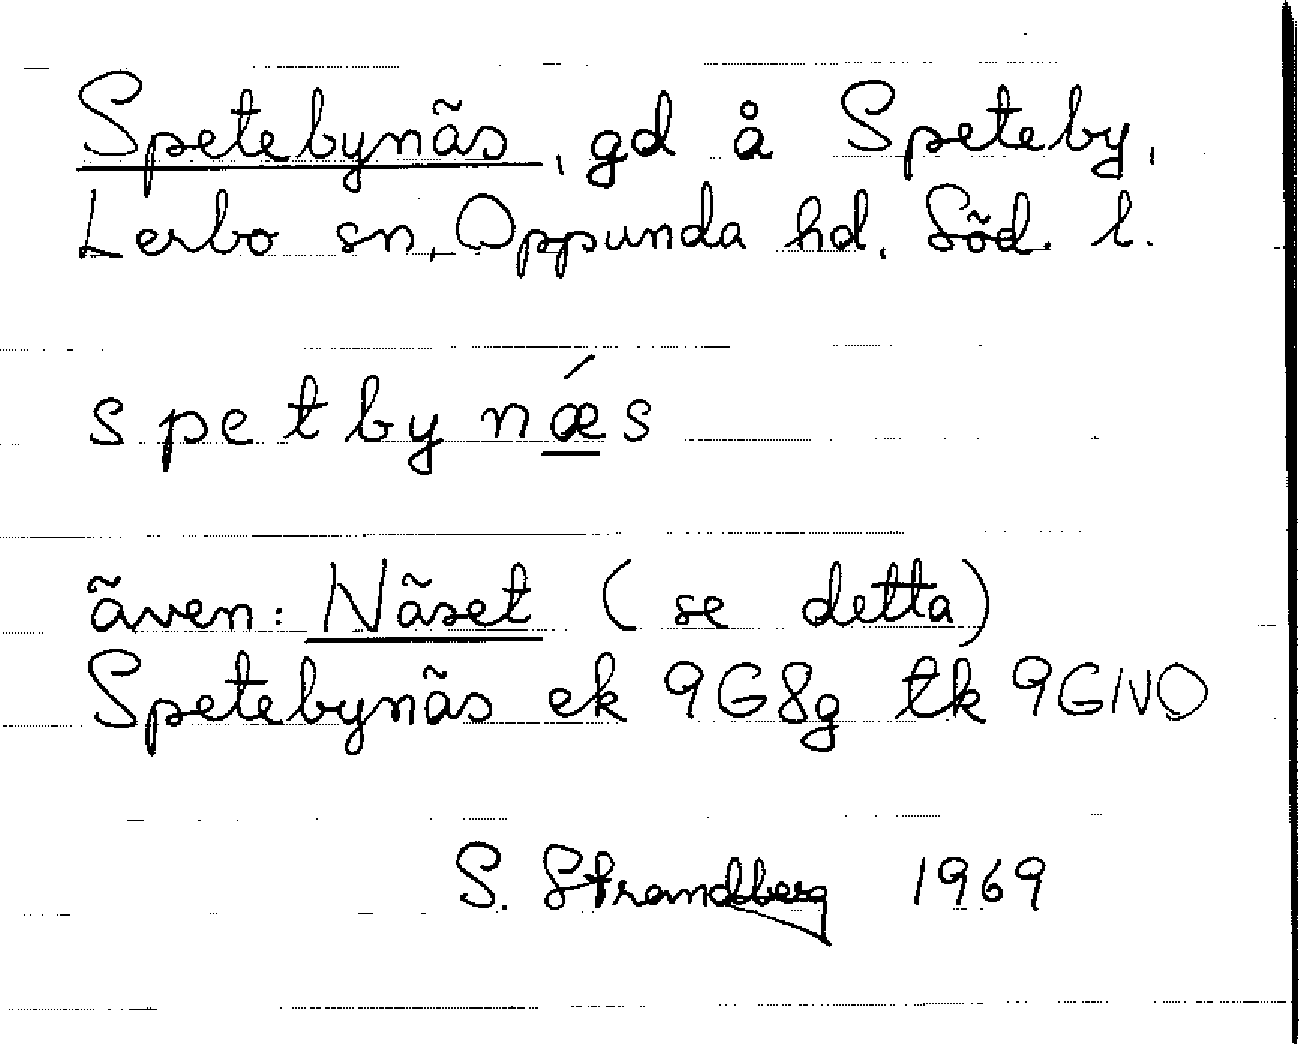 Spetebynäs, gd å Speteby,
Lerbo sn, Oppunda hd, Söd. l.
spetbynǽs
även: Näset (se detta)
Spetebynäs ek 9G8g tk 9GNO
S. Strandberg 1969